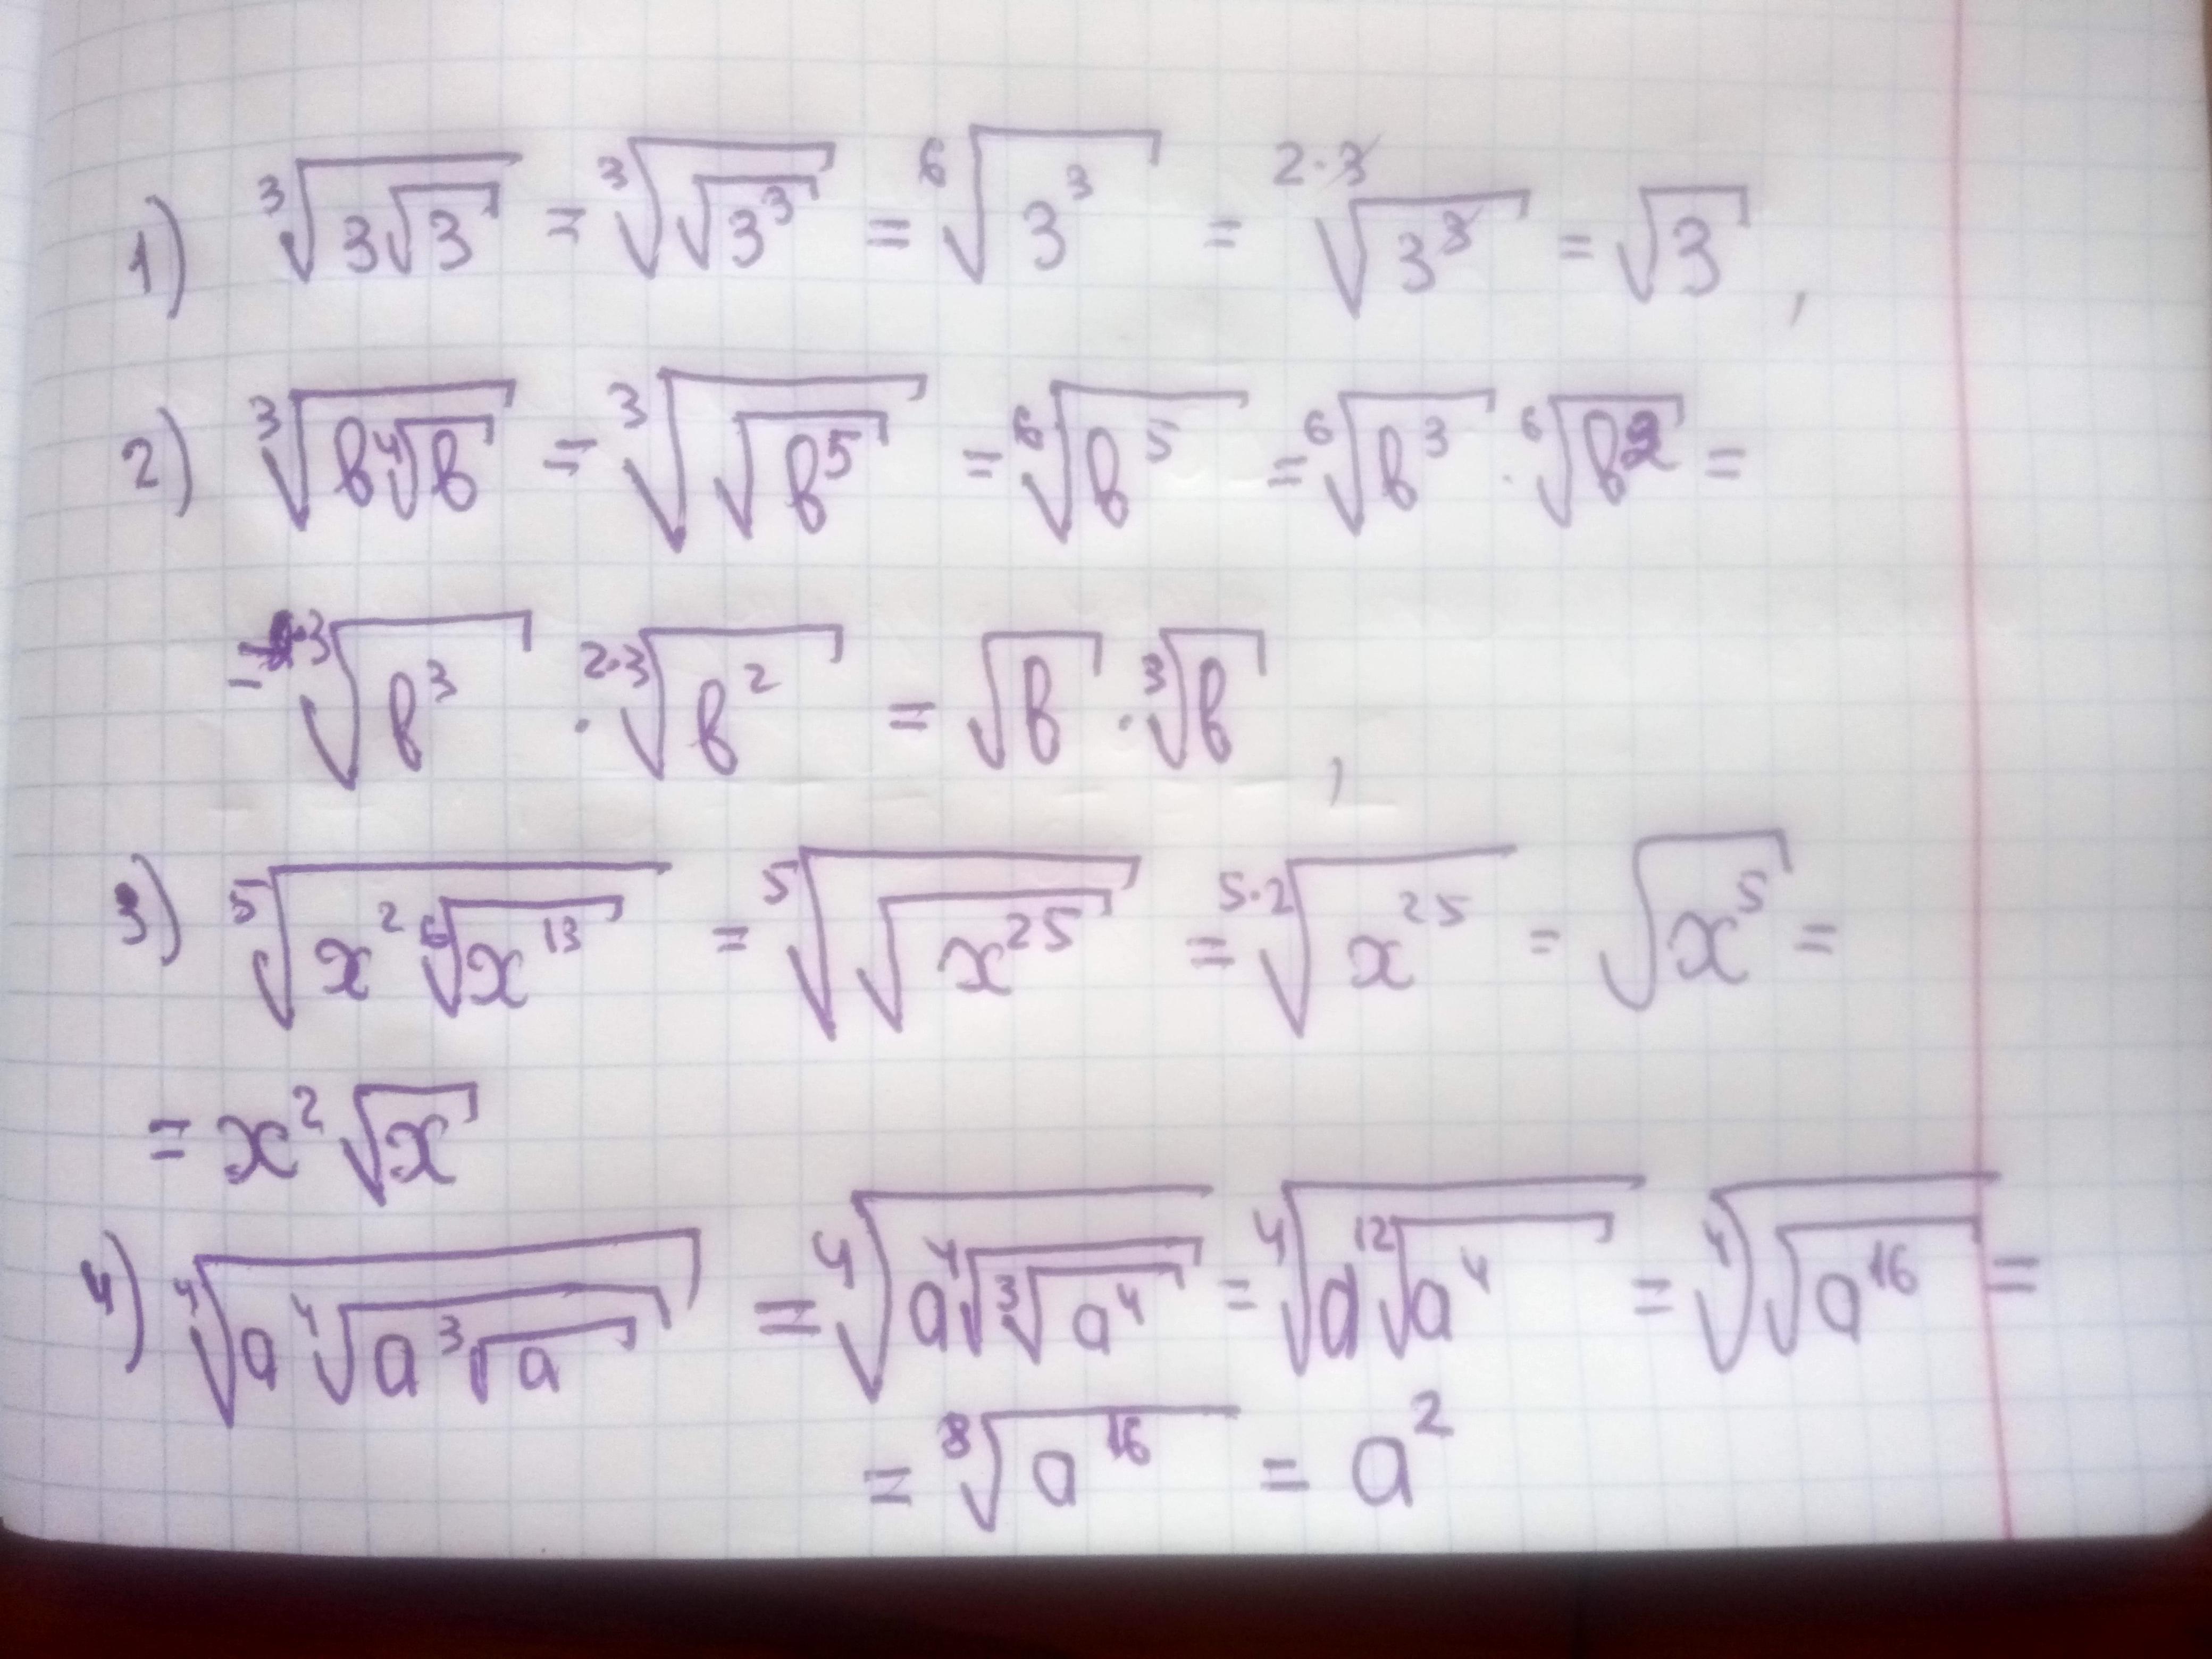 1) ∛(3√3) = ∛(√(3³)) = ⁶√(3³) = ²·³√(3³) = √3 ,
2) ∛(в⁴√в) = ∛(√(в⁵)) = ⁶√(в⁵) = ⁶√(в³) · ⁶√(в²) =
= ²·³√(в³) · ²·³√(в²) = √в · ∛в ,
3) ⁵√(x² ⁶√(x¹³)) = ⁵√(√(x²⁵)) = ⁵·²√(x²⁵) = √(x⁵) =
= x²√x
4) ⁴√(a ⁴√(a ∛a)) = ⁴√(a ⁴√(∛(a⁴))) = ⁴√(a ¹²√(a⁴)) = ⁴√(√(a¹⁶)) =
= ⁸√(a¹⁶) = a²